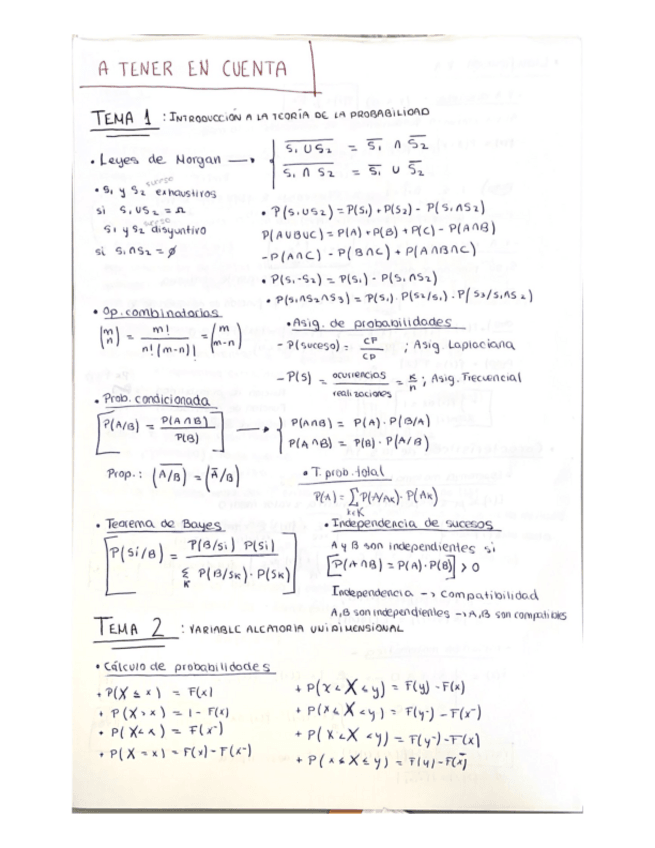 A TENER EN CUENTA
TEMA 1 : INTRODUCCIÓN A LA TEORÍA DE LA PROBABILIDAD
• Leyes de Morgan → { \overline{S₁ ∪ S₂} = \overline{S₁} ∩ \overline{S₂}
\overline{S₁ ∩ S₂} = \overline{S₁} ∪ \overline{S₂}
• S₁ y S₂ exhaustivos
si S₁ ∪ S₂ = Ω
S₁ y S₂ disyuntivo
si S₁ ∩ S₂ = ∅
• P(S₁ ∪ S₂) = P(S₁) + P(S₂) - P(S₁ ∩ S₂)
P(A∪B∪C) = P(A) + P(B) + P(C) - P(A∩B)
- P(A∩C) - P(B∩C) + P(A∩B∩C)
• P(S₁ - S₂) = P(S₁) - P(S₁ ∩ S₂)
• P(S₁∩S₂∩S₃) = P(S₁) · P(S₂/S₁) · P(S₃/S₁∩S₂)
• Op. combinatorias
(m n) = m! / n!(m-n)! = (m m-n)
• Asig. de probabilidades
- P(suceso) = CF / CP ; Asig. Laplaciana
- P(S) = ocurrencias / realizaciones = K / n ; Asig. Frecuencial
• Prob. condicionada
[P(A/B) = P(A∩B) / P(B)] → { P(A∩B) = P(A) · P(B/A)
P(A∩B) = P(B) · P(A/B)
Prop.: (\overline{A/B}) = (\overline{A}/B)
• T. prob. total
P(A) = Σ P(A/Aₖ) · P(Aₖ)
k∈K
• Teorema de Bayes
[P(Si/B) = P(B/Si) P(Si) / Σ P(B/Sₖ) · P(Sₖ)]
K
• Independencia de sucesos
A y B son independientes si
[P(A∩B) = P(A) · P(B)] > 0
Independencia → Compatibilidad
A, B son independientes → A, B son compatibles
TEMA 2 : VARIABLE ALEATORIA UNIDIMENSIONAL
• Cálculo de probabilidades
+ P(X ≤ x) = F(x)
+ P(X > x) = 1 - F(x)
• P(X < x) = F(x⁻)
+ P(X = x) = F(x) - F(x⁻)
+ P(x < X ≤ y) = F(y) - F(x)
+ P(x ≤ X < y) = F(y⁻) - F(x⁻)
+ P(x < X < y) = F(y⁻) - F(x)
+ P(x ≤ X ≤ y) = F(y) - F(x⁻)